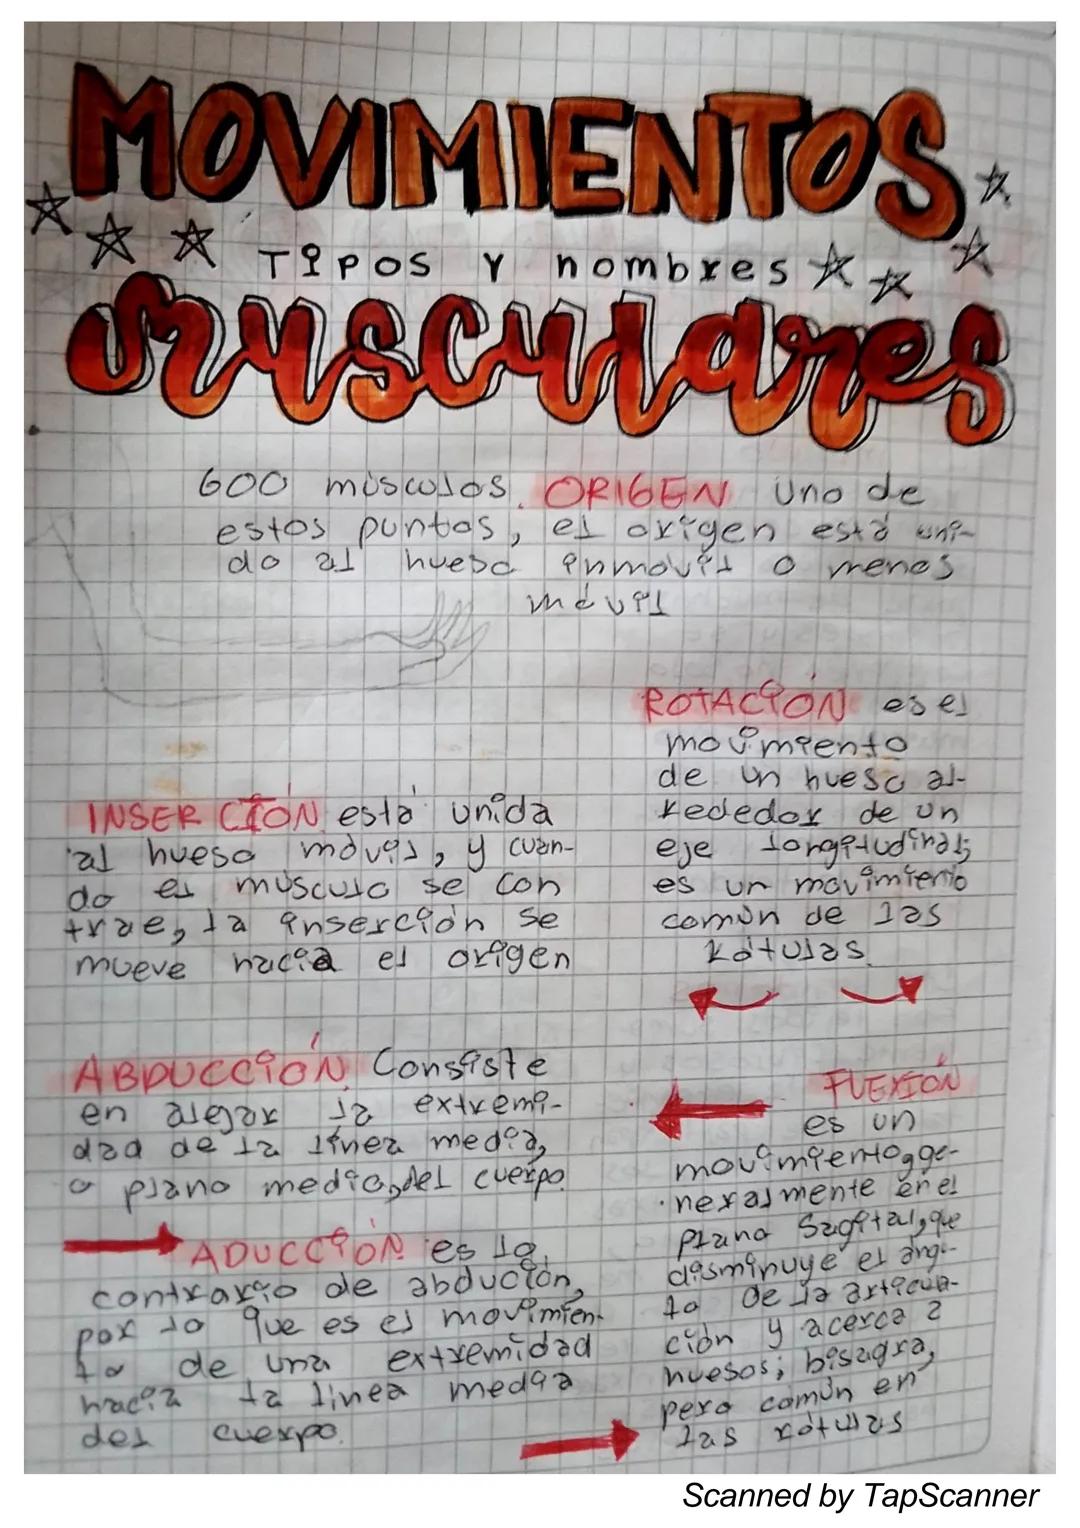 MOVIMIENTOS
TIPOS Y nombres
musculares
600 músculos. ORIGEN Uno de
estos puntos, el origen está uni-
do al hueso inmovil o menos
móvil
INSERCIÓN está unida
al hueso móvil, y cuan-
do el músculo se con
trae, la inserción se
mueve hacia el origen
ROTACIÓN es el
movimiento
de un hueso al-
rededor de un
eje longitudinal;
es un movimiento
común de las
rótulas.
ABDUCCIÓN Consiste
en alejar la extremi-
dad de la línea media,
o plano medio, del cuerpo.
ADUCCIÓN es lo
contrario de abdución,
por lo que es el movimien-
to de una extremidad
hacia la línea media
del cuerpo.
FLEXIÓN
es un
movimiento, ge-
neralmente en el
plano Sagital, que
disminuye el ángu-
lo de la articula-
ción y acerca 2
huesos; bisagra,
pero común en
las rótulas
Scanned by TapScanner